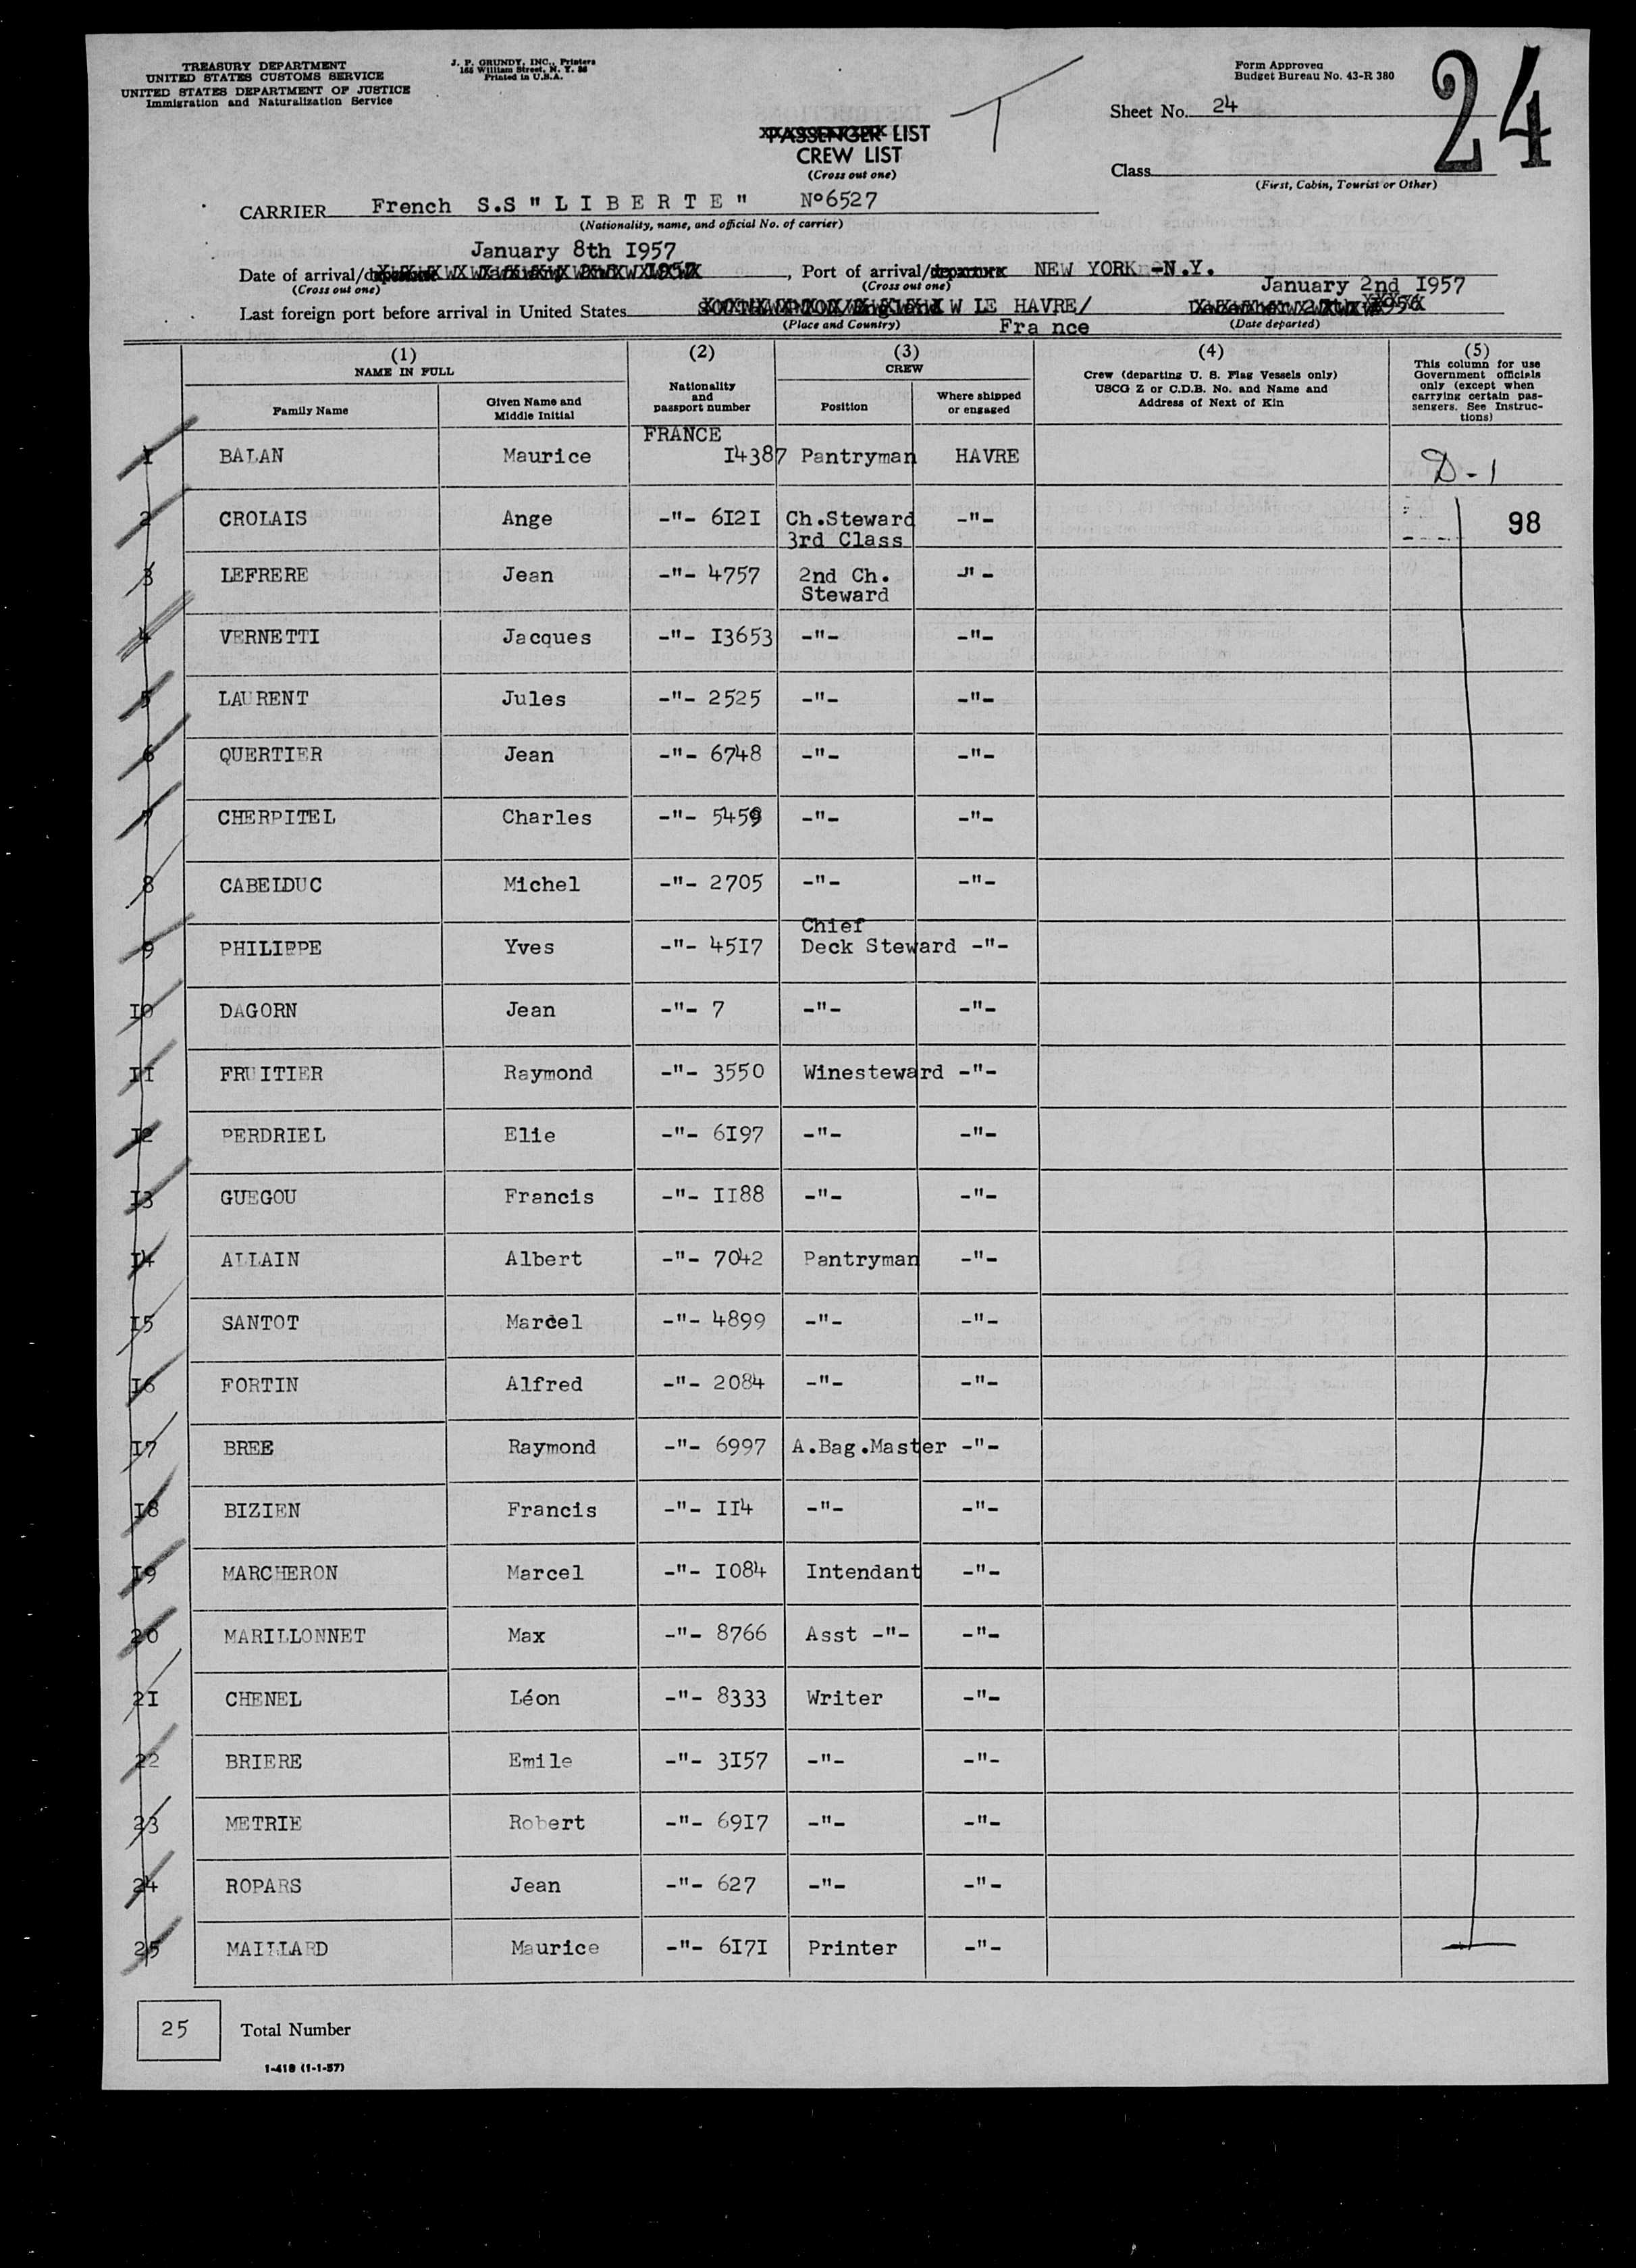 TREASURY DEPARTMENT
UNITED STATES CUSTOMS SERVICE
UNITED STATES DEPARTMENT OF JUSTICE
Immigration and Naturalization Service
J. P. GRUNDY, INC., Printers
165 William Street, N. Y. 38
Printed in U.S.A.
Form Approved
Budget Bureau No. 43-R 380
24
Sheet No. 24
PASSENGER LIST
CREW LIST
(Cross out one)
Class
(First, Cabin, Tourist or Other)
CARRIER French S.S " L I B E R T E " Nº6527
(Nationality, name, and official No. of carrier)
January 8th I957
Date of arrival/departure , Port of arrival/departure NEW YORK -N.Y.
(Cross out one) (Cross out one)
January 2nd I957
Last foreign port before arrival in United States LE HAVRE/
(Place and Country) Fra nce (Date departed)
(1) (2) (3) (4) (5)
NAME IN FULL
Family Name
Given Name and Middle Initial
Nationality and passport number
CREW
Position
Where shipped or engaged
Crew (departing U. S. Flag Vessels only)
USCG Z or C.D.B. No. and Name and
Address of Next of Kin
This column for use
Government officials
only (except when
carrying certain pas-
sengers. See Instruc-
tions)
FRANCE
I BALAN Maurice I4387 Pantryman HAVRE D-1
2 CROLAIS Ange -"- 6I2I Ch.Steward -"- 98
3rd Class
3 LEFRERE Jean -"- 4757 2nd Ch. -"-
Steward
4 VERNETTI Jacques -"- I3653 -"- -"-
5 LAURENT Jules -"- 2525 -"- -"-
6 QUERTIER Jean -"- 6748 -"- -"-
7 CHERPITEL Charles -"- 5459 -"- -"-
8 CABEIDUC Michel -"- 2705 -"- -"-
Chief
9 PHILIPPE Yves -"- 45I7 Deck Steward -"-
I0 DAGORN Jean -"- 7 -"- -"-
II FRUITIER Raymond -"- 3550 Winesteward -"-
I2 PERDRIEL Elie -"- 6I97 -"- -"-
I3 GUEGOU Francis -"- II88 -"- -"-
I4 ALLAIN Albert -"- 7042 Pantryman -"-
I5 SANTOT Marcel -"- 4899 -"- -"-
I6 FORTIN Alfred -"- 2084 -"- -"-
I7 BREE Raymond -"- 6997 A.Bag.Master -"-
I8 BIZIEN Francis -"- II4 -"- -"-
I9 MARCHERON Marcel -"- I084 Intendant -"-
20 MARILLONNET Max -"- 8766 Asst -"- -"-
2I CHENEL Léon -"- 8333 Writer -"-
22 BRIERE Emile -"- 3I57 -"- -"-
23 METRIE Robert -"- 69I7 -"- -"-
24 ROPARS Jean -"- 627 -"- -"-
25 MAILLARD Maurice -"- 6I7I Printer -"-
25 Total Number
I-418 (1-1-57)